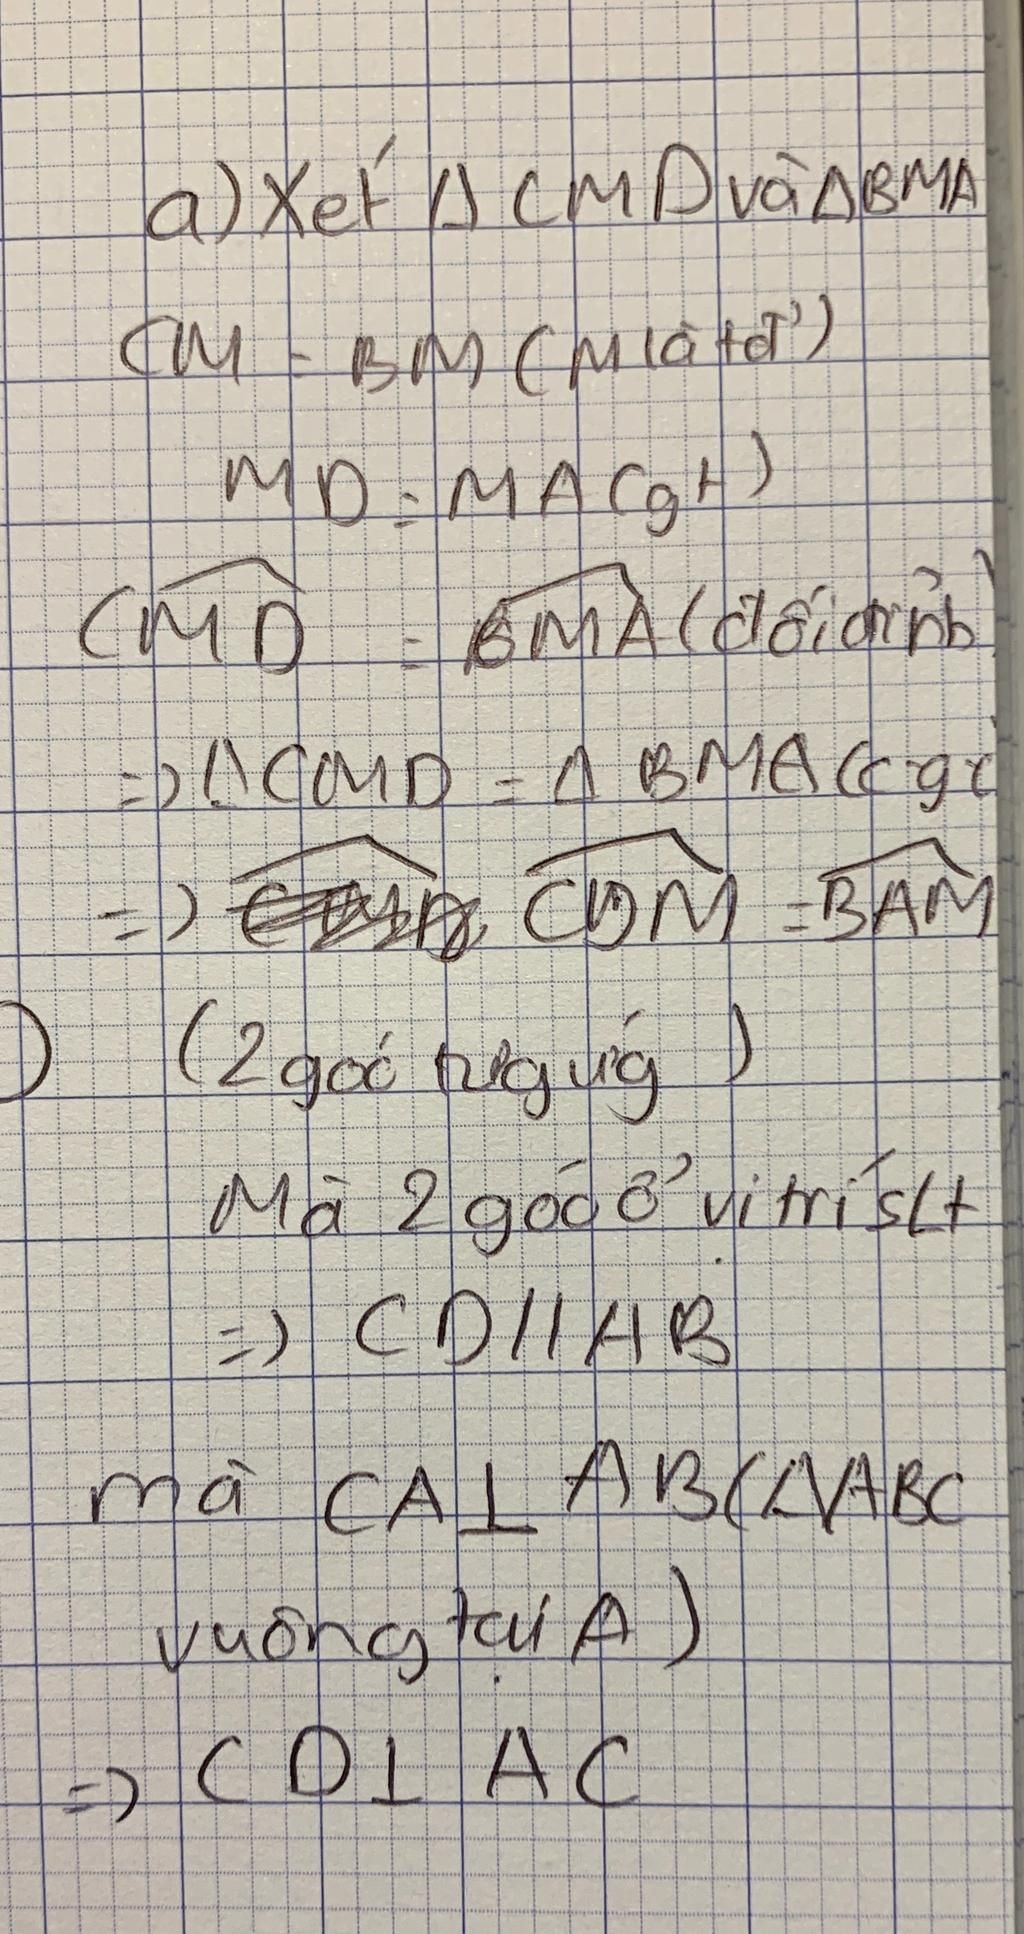 a) Xét Δ CMD và Δ BMA
CM = BM (M là tđ)
MD = MA (gt)
CMD = BMA (đối đỉnh)
=> Δ CMD = Δ BMA (c g c
=> CDM = BAM
) (2 góc tương ứng)
Mà 2 góc ở vị trí slt
=> CD // AB
mà CA ⊥ AB (Δ ABC
vuông tại A)
=> CD ⊥ AC